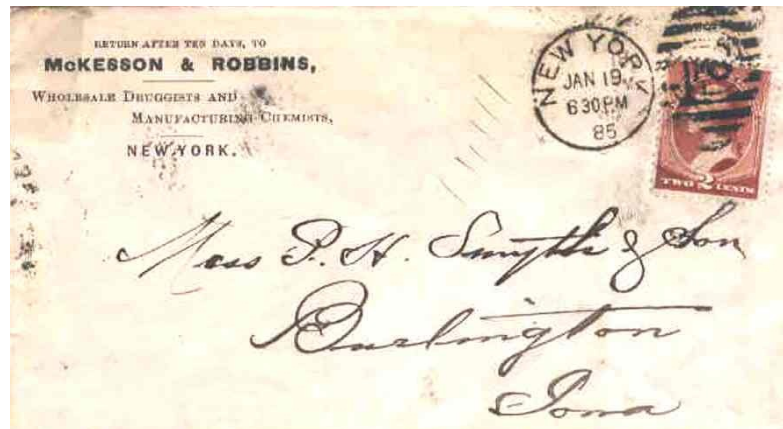 RETURN AFTER TEN DAYS, TO
McKESSON & ROBBINS,
WHOLESALE DRUGGISTS AND
MANUFACTURING CHEMISTS,
NEW YORK.
NEW YORK
JAN 19
6 30 PM
85
TWO 2 CENTS
Mess P. H. Smythe & Son
Burlington
Iowa